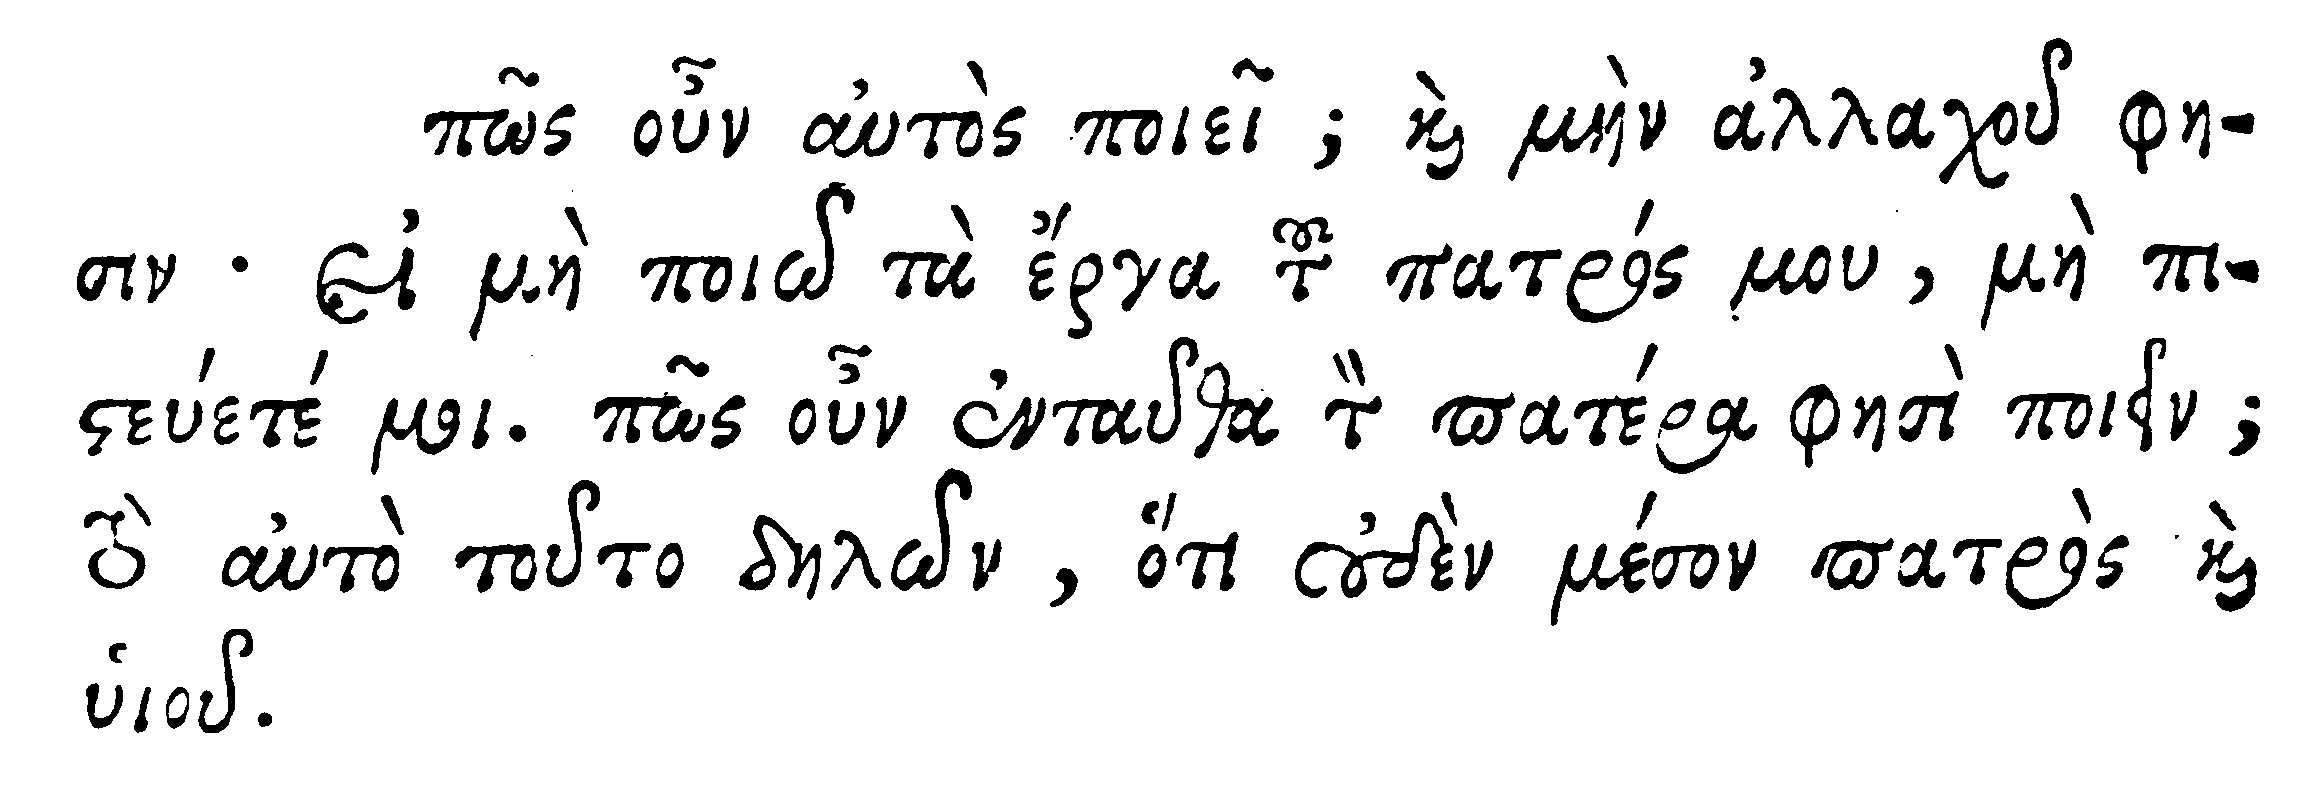 πῶς οὖν αὐτὸς ποιεῖ; καὶ μὴν ἀλλαχοῦ φη-
σιν· Εἰ μὴ ποιῶ τὰ ἔργα τοῦ πατρός μου, μὴ πι-
στεύετέ μοι. πῶς οὖν ἐνταῦθα τὸν πατέρα φησὶ ποιεῖν;
τὸ αὐτὸ τοῦτο δηλῶν, ὅτι οὐδὲν μέσον πατρὸς καὶ
υἱοῦ.